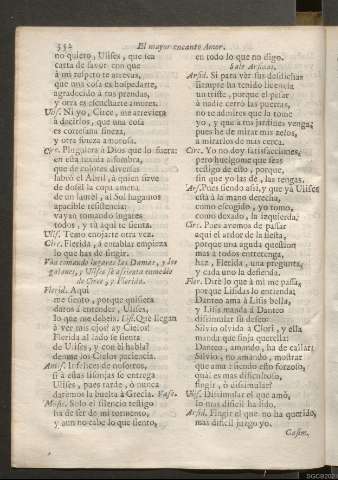 354 El mayor encanto Amor.
no quiero, Ulises, que sea
carta de favor con que
à mi respeto te atrevas,
que una cosa es hospedarte,
agradecido à tus prendas,
y otra es escucharte amores.
Ulis. Ni yo, Circe, me atreviera
à decirlos, que una cosa
es cortesana fineza,
y otra fineza amorosa.
Circ. Pluguiera à Dios que lo fuera:
en esta texida alfombra,
que de colores diversas
labró el Abril, à quien sirve
de dosèl la copa amena
de un laurèl, al Sol hagamos
apacible resistencia:
vayan tomando lugares
todos, y tù aqui te sienta.
Ulis. Temo enojarte otra vez.
Circ. Flerida, à entablar empieza
lo que has de fingir.
Van tomando lugares las Damas, y los
galanes, y Ulises se assienta enmedio
de Circe, y Flerida.
Flerid. Aqui
me siento, porque quisiera
daros à entender, Ulises,
lo que me debeis. Lis. Què llegan
à vèr mis ojos! ay Cielos!
Flerida al lado se sienta
de Ulises, y con èl habla!
denme los Cielos paciencia.
Antist. Infelices de nosotros,
si à estas lisonjas se entrega
Ulises, pues tarde, ò nunca
darèmos la buelta à Grecia. Vase.
Music. Solo el silencio testigo
ha de ser de mi tormento,
y aun no cabe lo que siento,
en todo lo que no digo.
Sale Arsidas.
Arsid. Si para vèr sus desdichas
siempre ha tenido licencia
un triste, porque el pesar
à nadie cerrò las puertas,
no te admires que la tome
yo, y que à tus jardines venga;
pues he de mirar mis zelos,
à mirarlos de mas cerca.
Circ. Yo no doy satisfacciones,
pero huelgome que seas
testigo de esto, porque,
sin que yo las dè, las tengas.
Ars. Pues siendo assi, y que yà Ulises
està à la mano derecha,
como escogido, yo tomo,
como dexado, la izquierda.
Circ. Pues avemos de passar
aqui el ardor de la siesta,
porque una aguda question
mas à todos entretenga,
haz, Flerida, una pregunta,
y cada uno la defienda.
Fler. Dirè lo que à mi me passa,
porque Lisidas lo entienda:
Danteo ama à Lisis bella,
y Lisis manda à Danteo
dissimular su deseo:
Silvio olvida à Clori, y ella
manda que finja querella:
Danteo, amando, ha de callar;
Silvio, no amando, mostrar
que ama: siendo esto forzoso,
qual es mas dificultoso,
fingir, ò dissimular?
Ulis. Dissimular el que amò,
es mas dificil ha sido.
Arsid. Fingir el que no ha querido,
mas dificil juzgo yo.
Casim.